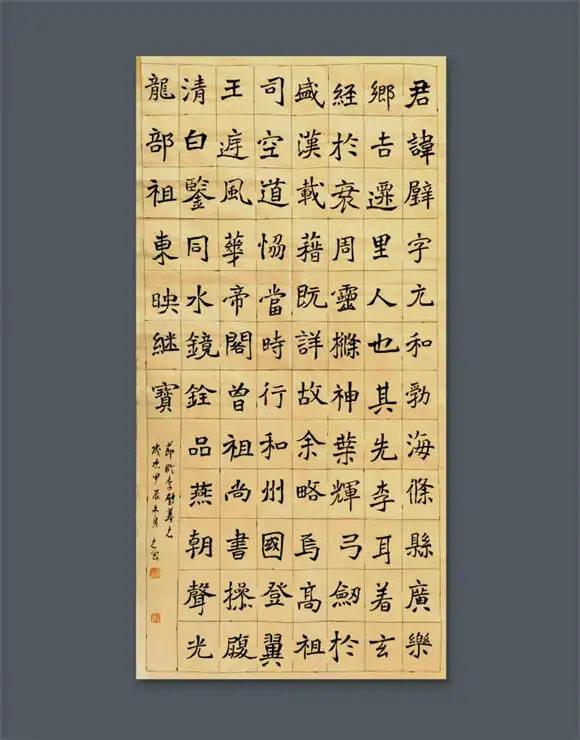 君諱璧字元和勃海條縣廣樂
鄉吉遷里人也其先李耳着玄
經於衰周靈樤神葉輝弓劔於
盛漢載藉既詳故余略焉高祖
司空道恊當時行和州國登翼
王庭風華帝閣曾祖尚書操履
清白鑒同水鏡銓品燕朝聲光
龍部祖東映継寶
節臨李璧墓志
歲次甲辰